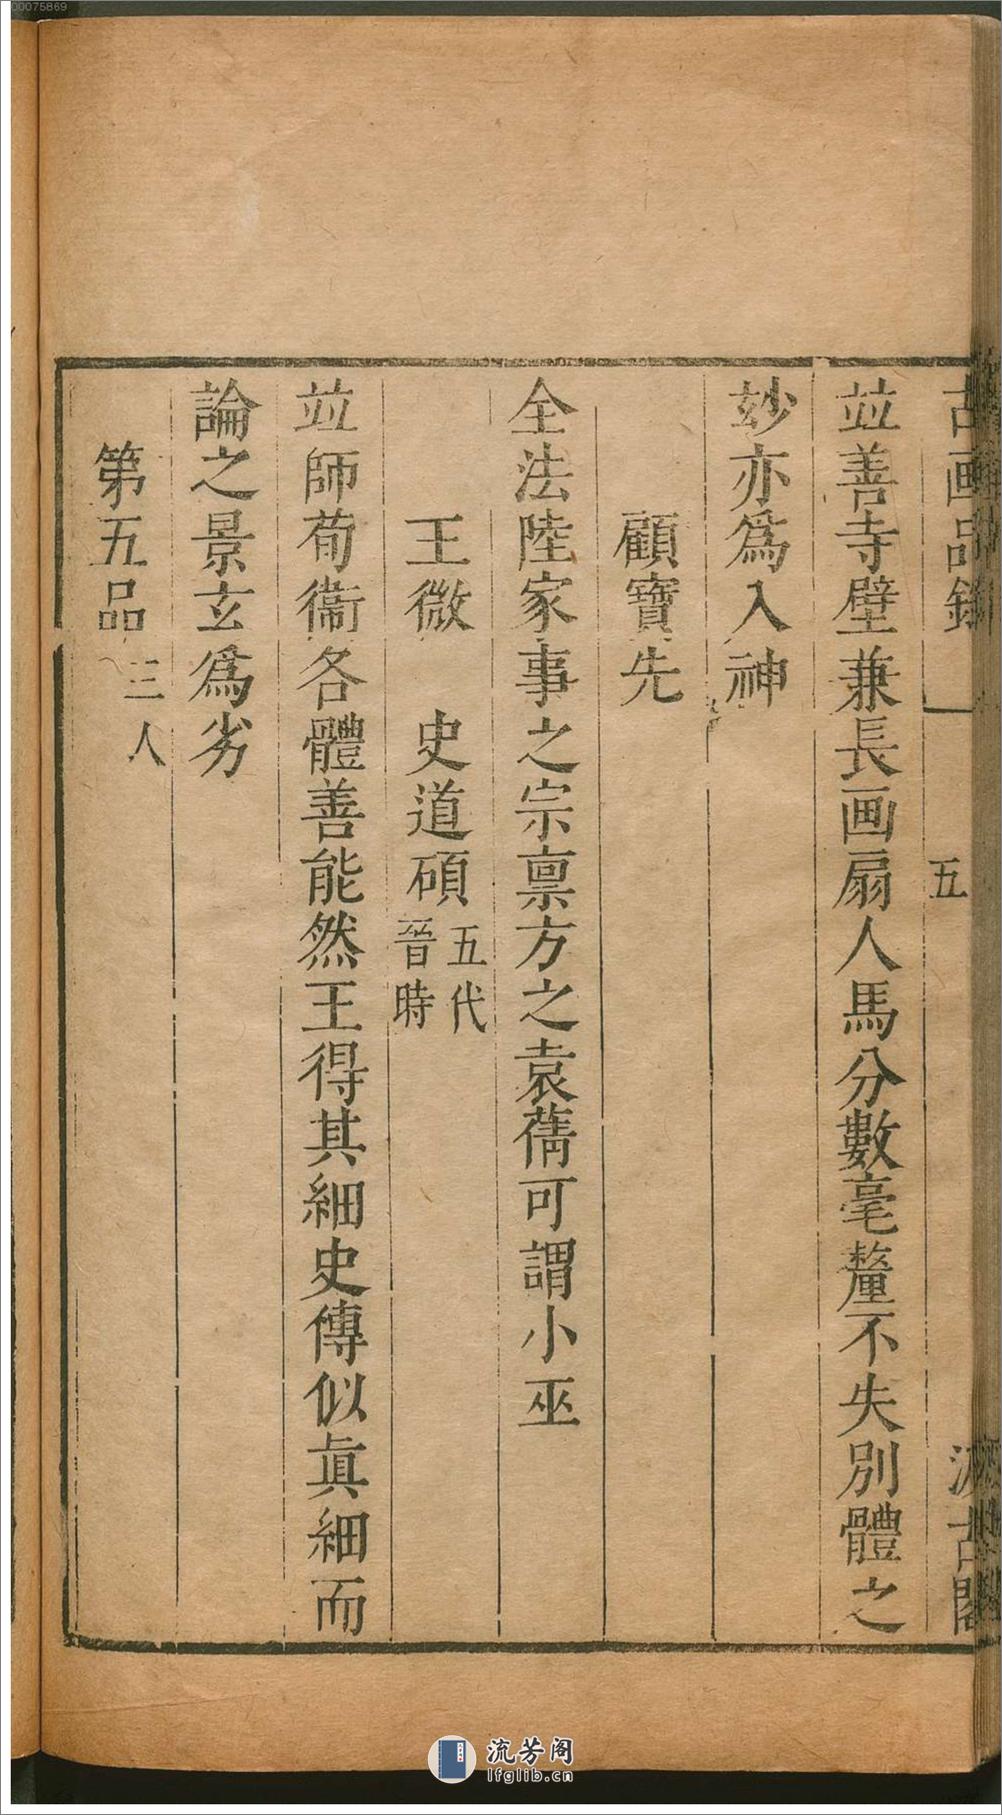 古画品錄
五
汲古閣
並善寺壁兼長画扇人馬分數毫釐不失別體之
妙亦爲入神
顧寶先
全法陸家事之宗禀方之袁蒨可謂小巫
王微 史道碩 五代晉時
並師荀衞各體善能然王得其細史傳似眞細而
論之景玄爲劣
第五品 三人
00075869
流芳阁
lfglib.cn